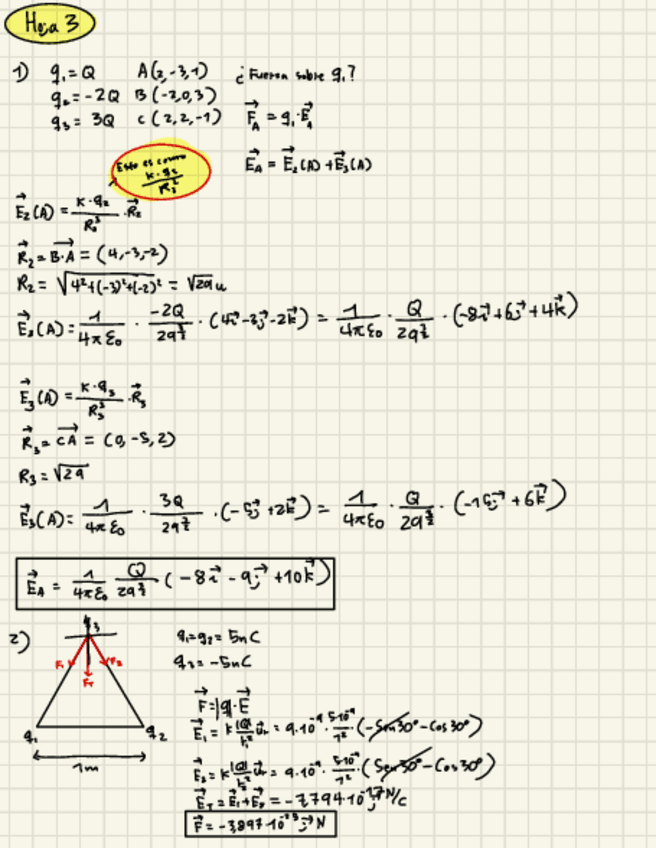 Hoja 3
1) q₁ = Q A(2,-3,1) ¿Fuerza sobre q₁?
q₂ = -2Q B(-2,0,3) F⃗_A = q₁·E⃗_A
q₃ = 3Q C(2,2,-1)
E⃗_A = E⃗₂(A) + E⃗₃(A)
Esto es como K·q₂/R₂²
E⃗₂(A) = K·q₂/R₂³ · R⃗₂
R⃗₂ = B·A = (4,-3,-2)
R₂ = √(4²+(-3)²+(-2)²) = √29 u
E⃗₂(A) = 1/4πε₀ · -2Q/29^(3/2) · (4i⃗-3j⃗-2k⃗) = 1/4πε₀ · Q/29^(3/2) · (-8i⃗+6j⃗+4k⃗)
E⃗₃(A) = K·q₃/R₃³ · R⃗₃
R⃗₃ = CA = (0,-5,2)
R₃ = √29
E⃗₃(A) = 1/4πε₀ · 3Q/29^(3/2) · (-5j⃗+2k⃗) = 1/4πε₀ · Q/29^(3/2) · (-15j⃗+6k⃗)
E⃗_A = 1/4πε₀ Q/29^(3/2) (-8i⃗ - 9j⃗ + 10k⃗)
2) q₃ q₁=q₂= 5nC
q₃ = -5nC
F₁ F₂
F_T
F⃗ = |q|·E⃗
q₁ q₂ E⃗₁ = K|Q|/r² u⃗r = 9·10⁻⁹ · 5·10⁻⁹/1² (-Sen30° - Cos30°)
1m
E⃗₂ = K|Q|/r² u⃗r = 9·10⁻⁹ · 5·10⁻⁹/1² (Sen30° - Cos30°)
E⃗_T = E⃗₁ + E⃗₂ = -7,794·10⁻¹⁷ j⃗ N/C
F⃗ = -3,897·10⁻²⁵ j⃗ N